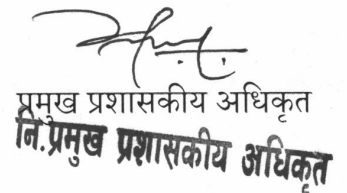 प्रमुख प्रशासकीय अधिकृत
नि.प्रमुख प्रशासकीय अधिकृत